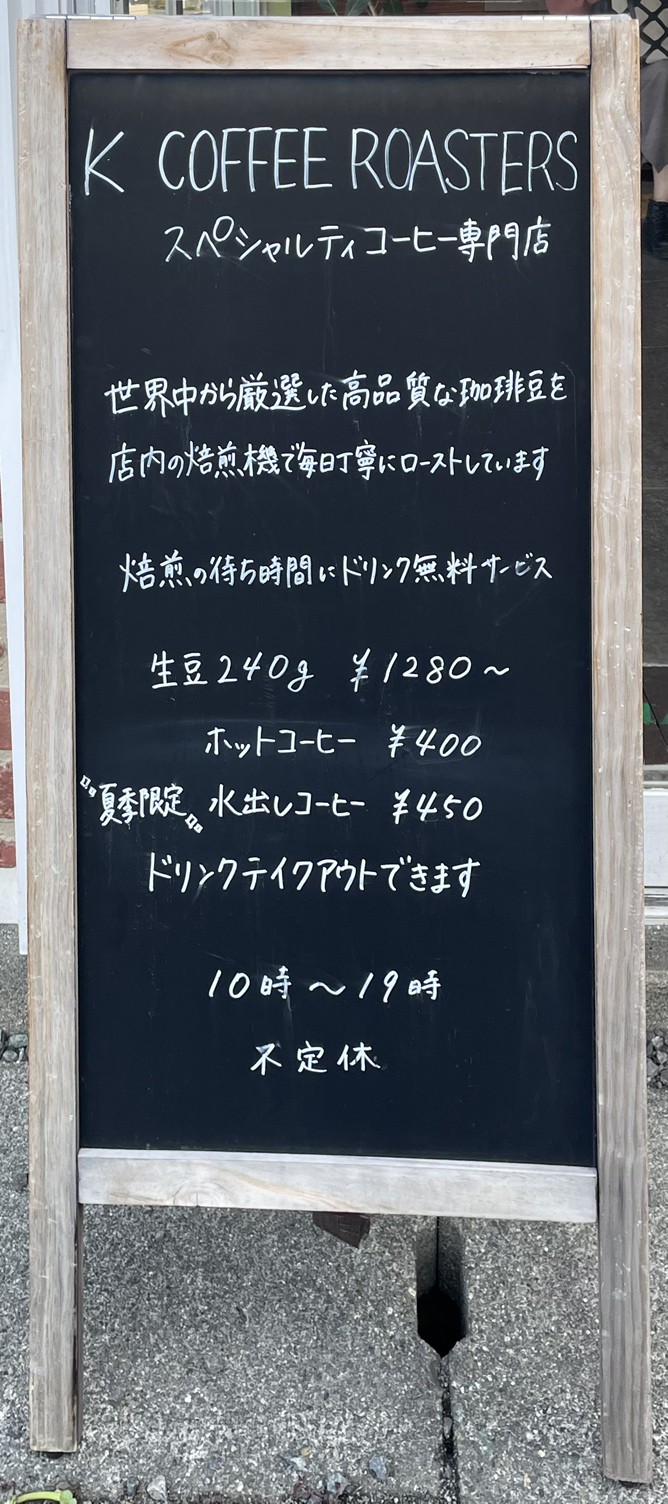 K COFFEE ROASTERS
スペシャルティコーヒー専門店
世界中から厳選した高品質な珈琲豆を
店内の焙煎機で毎日丁寧にローストしています
焙煎の待ち時間にドリンク無料サービス
生豆240g ¥1280～
ホットコーヒー ¥400
夏季限定 水出しコーヒー ¥450
ドリンクテイクアウトできます
10時～19時
不定休